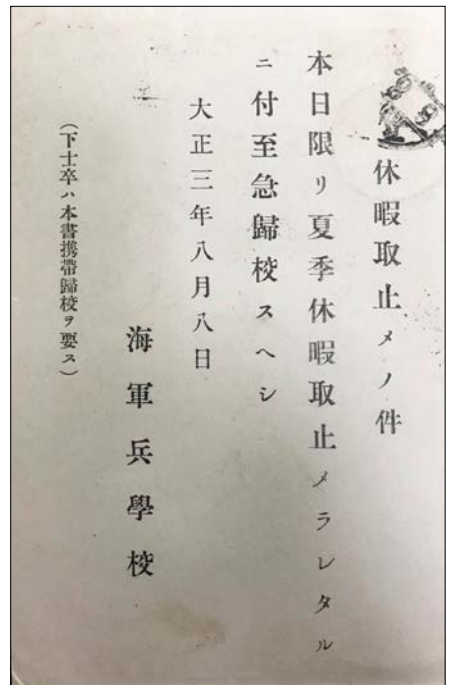 休暇取止メノ件
本日限リ夏季休暇取止メラレタル
ニ付至急歸校スヘシ
大正三年八月八日
海軍兵學校
(下士卒ハ本書携帶歸校ヲ要ス)